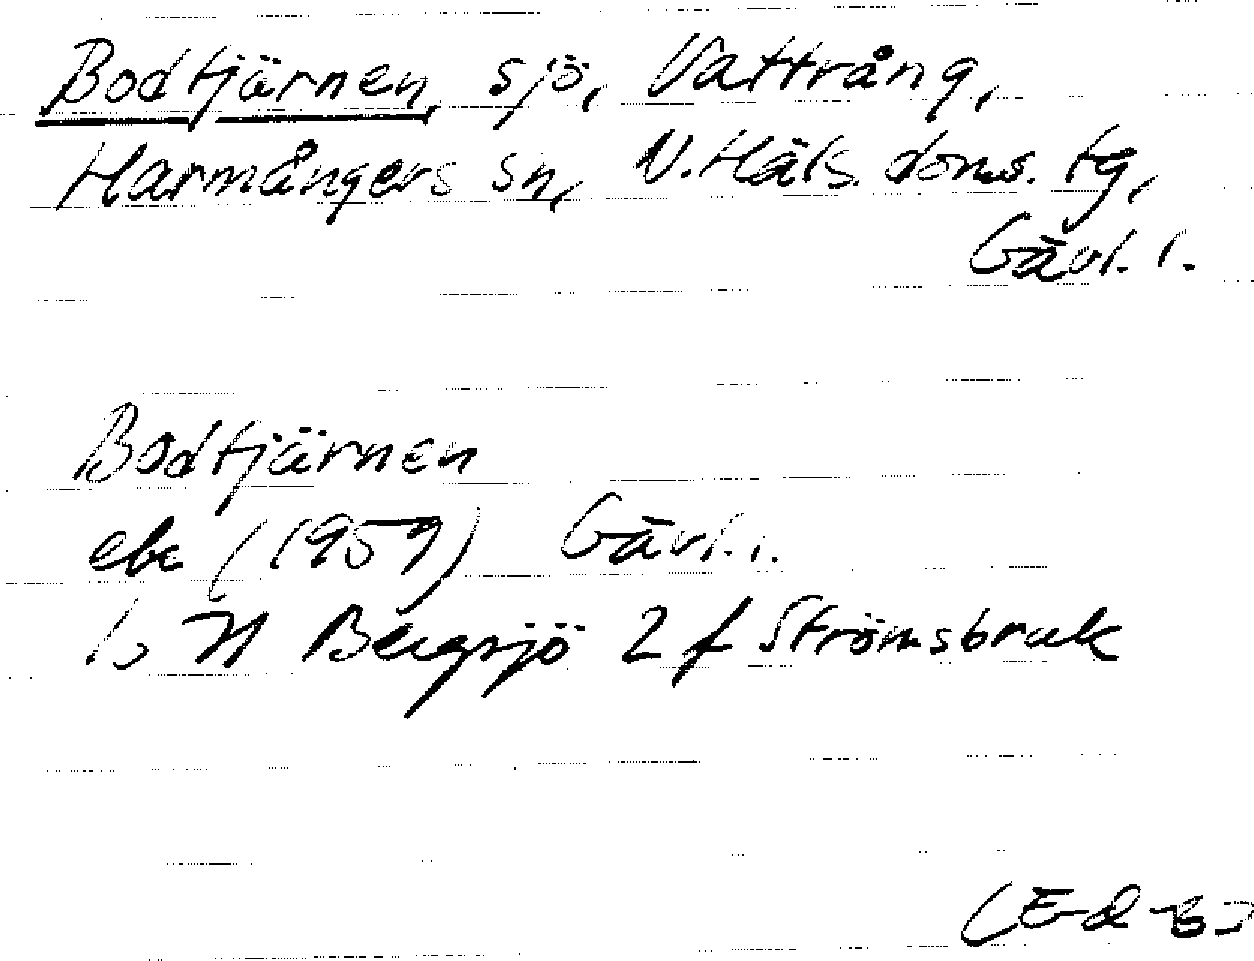 Bodtjärnen, sjö, Vattrång,
Harmångers sn, N. Häls. doms. tg,
Gävl. l.
Bodtjärnen
ek (1959) Gävl. l.
N Bergsjö 2 f Strömsbruk